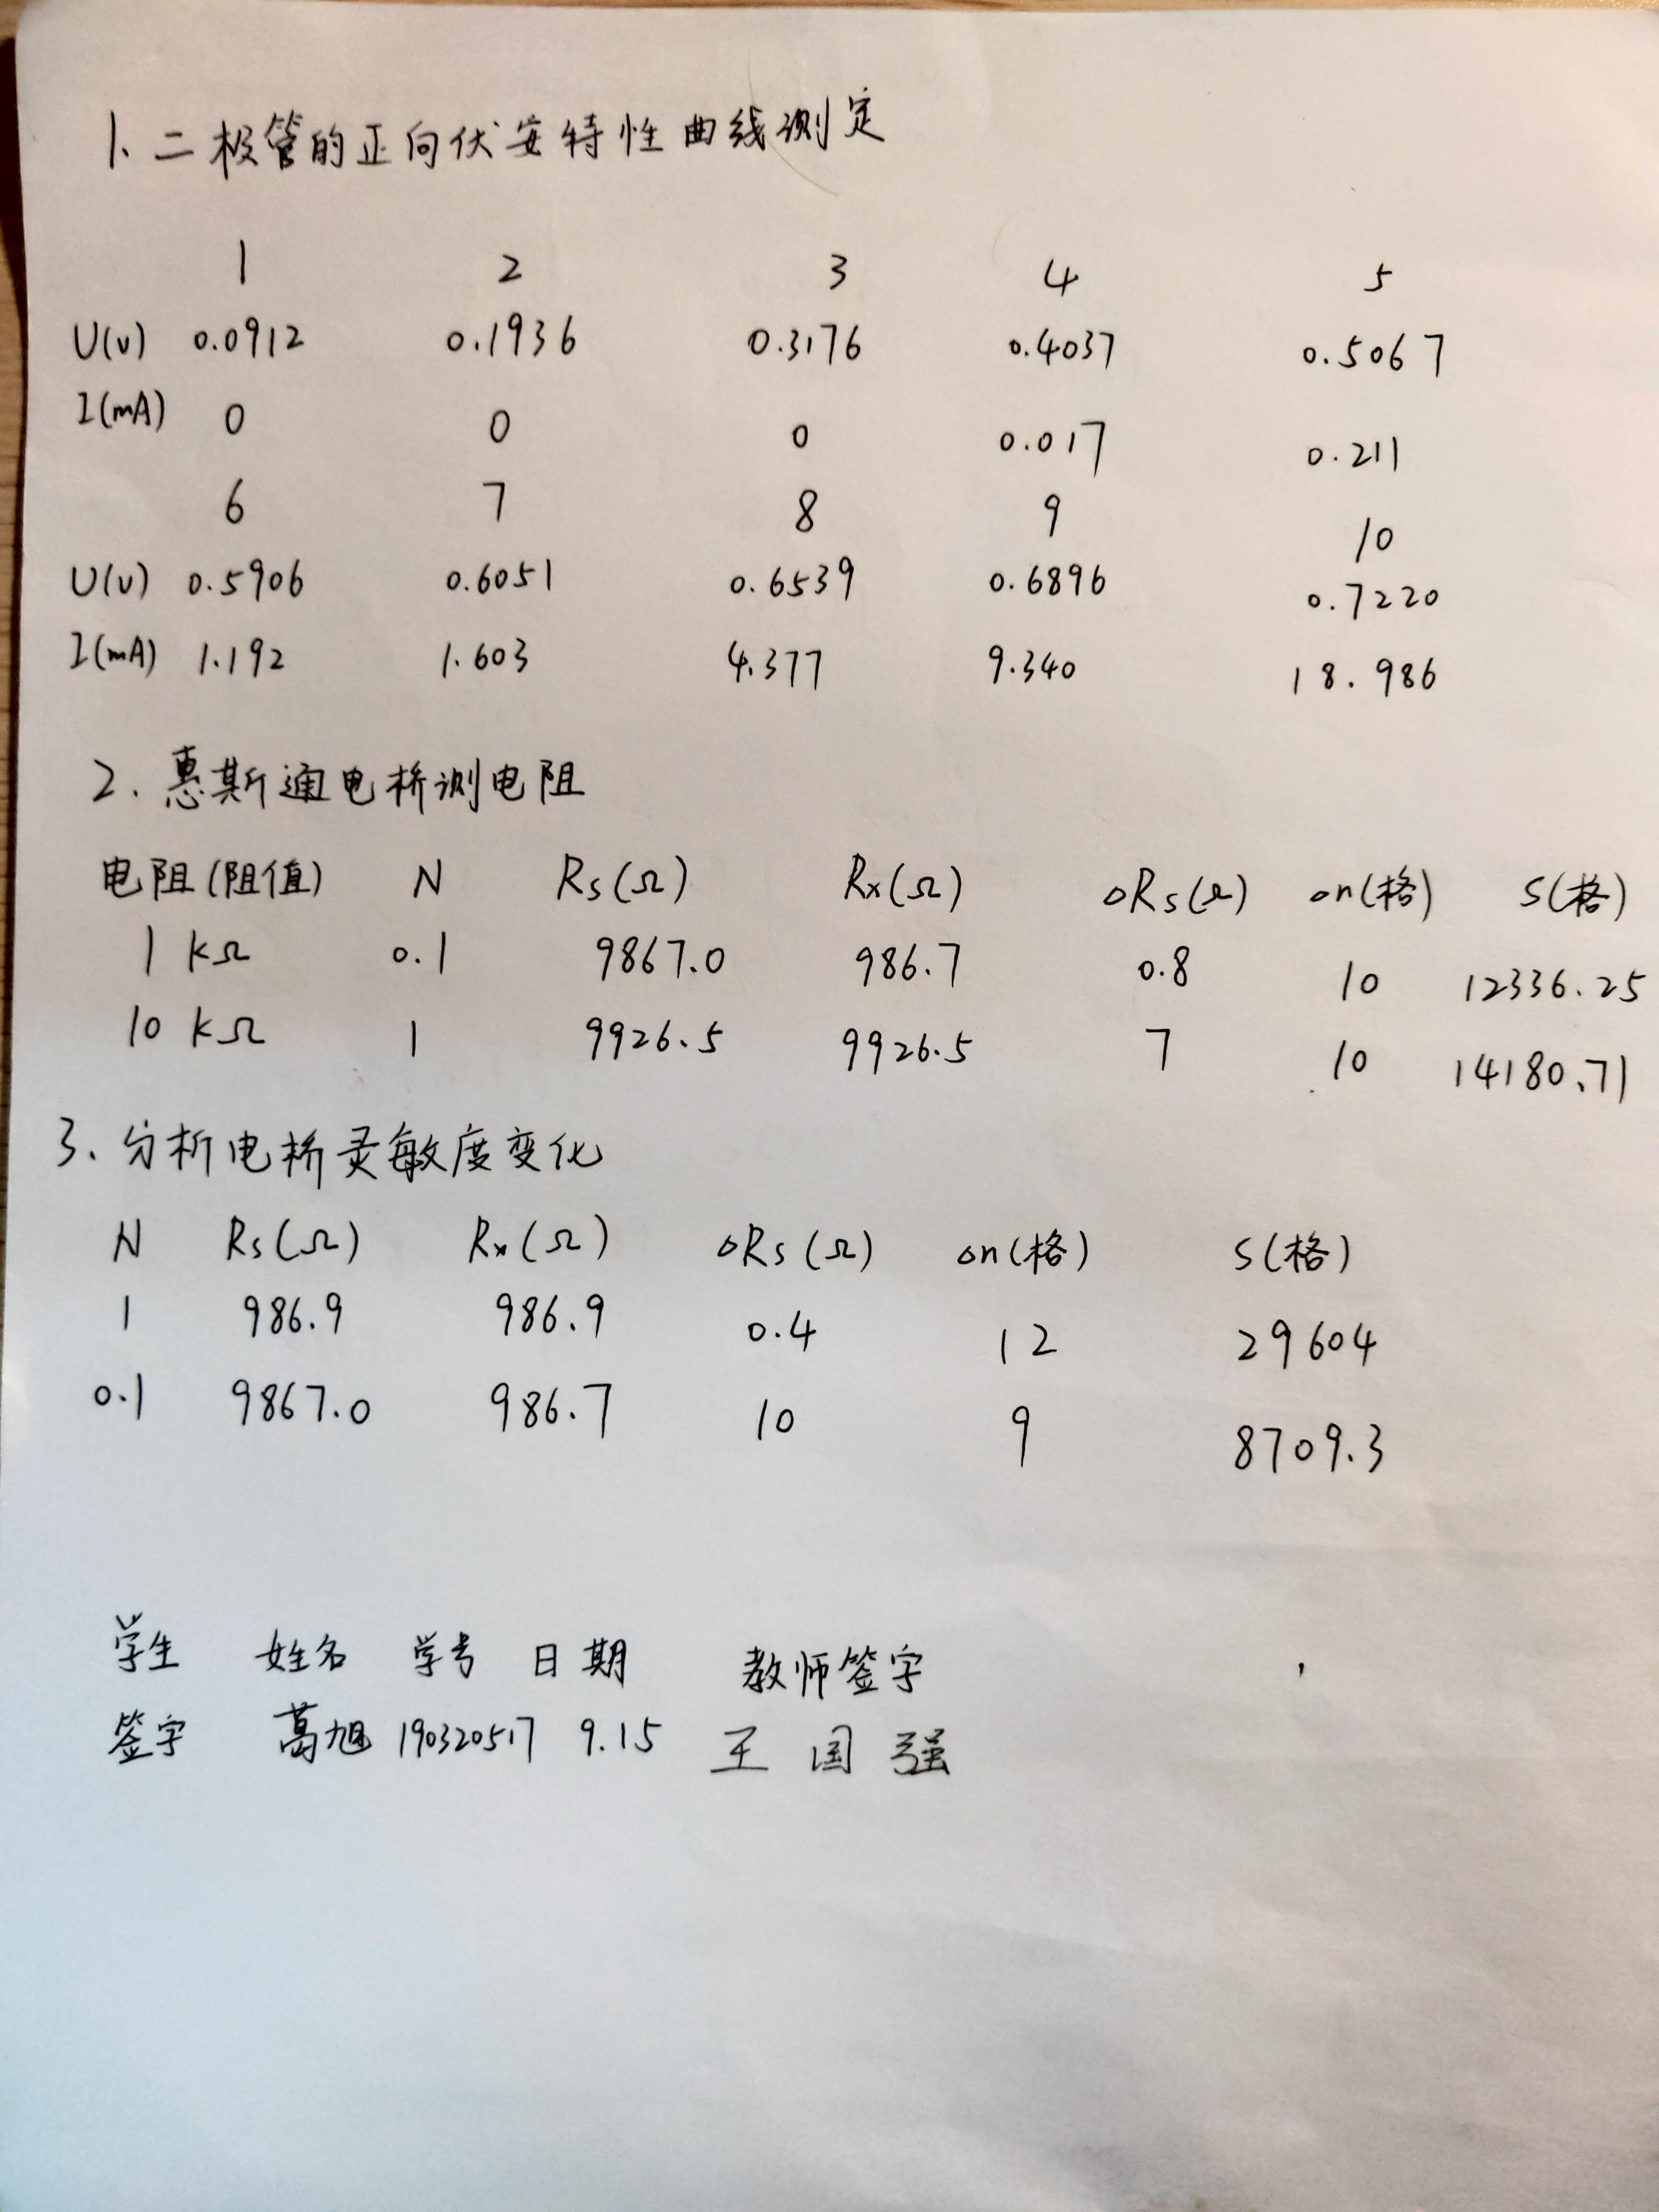 1. 二极管的正向伏安特性曲线测定
1 2 3 4 5
U(v) 0.0912 0.1936 0.3176 0.4037 0.5067
I(mA) 0 0 0 0.017 0.211
6 7 8 9 10
U(v) 0.5906 0.6051 0.6539 0.6896 0.7220
I(mA) 1.192 1.603 4.377 9.340 18.986
2. 惠斯通电桥测电阻
电阻(阻值) N Rs(Ω) Rx(Ω) ΔRs(Ω) Δn(格) S(格)
1 kΩ 0.1 9867.0 986.7 0.8 10 12336.25
10 kΩ 1 9926.5 9926.5 7 10 14180.71
3. 分析电桥灵敏度变化
N Rs(Ω) Rx(Ω) ΔRs(Ω) Δn(格) S(格)
1 986.9 986.9 0.4 12 29604
0.1 9867.0 986.7 10 9 8709.3
学生 姓名 学号 日期 教师签字
签字 葛旭 190320517 9.15 王国强